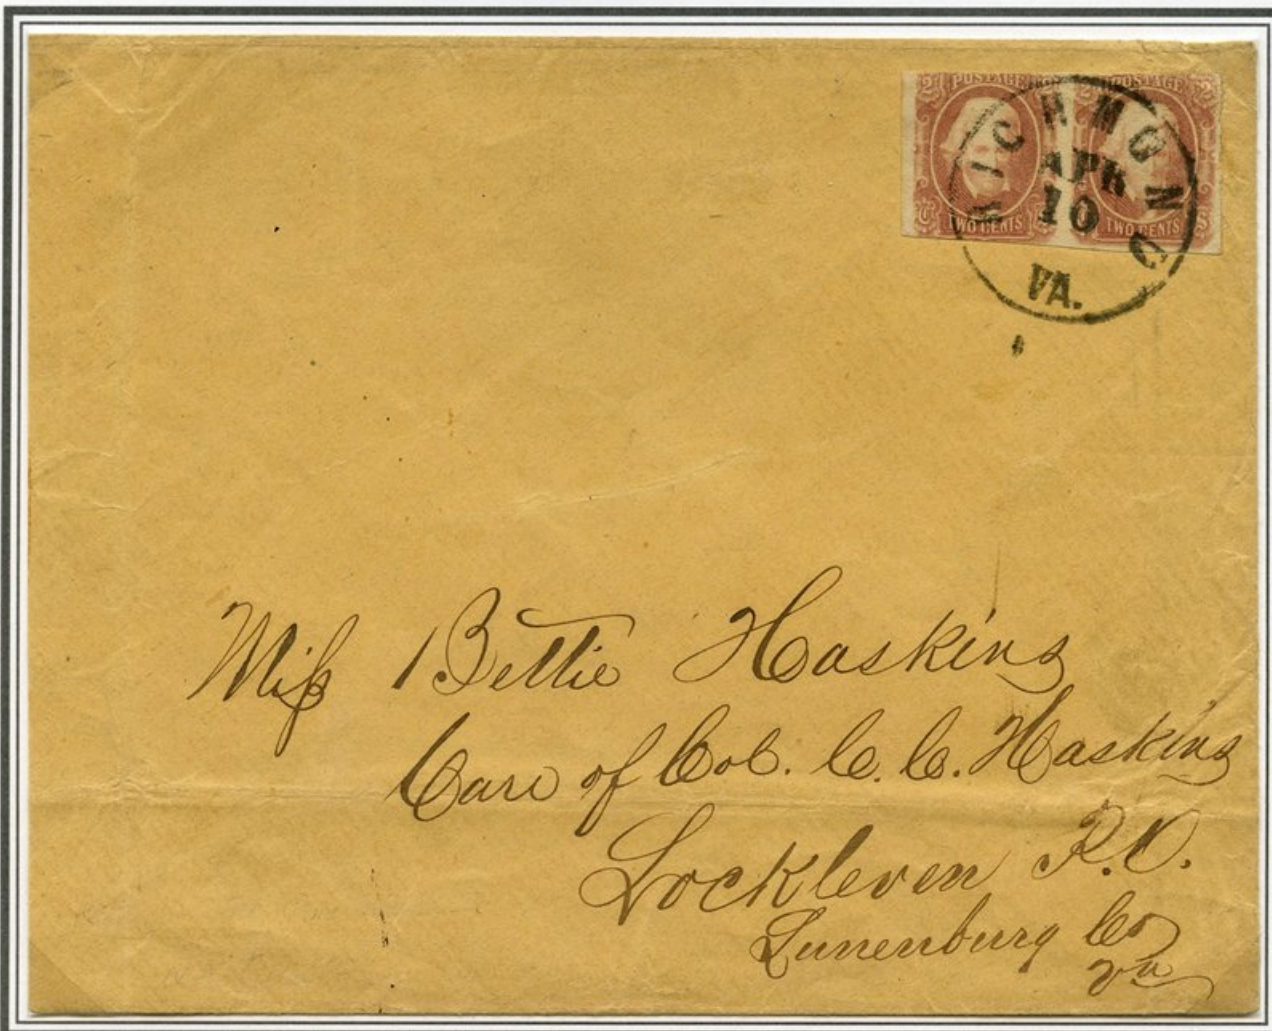 2 POSTAGE 2 2 POSTAGE 2
TWO CENTS TWO CENTS
RICHMOND
APR
10
VA.
Miss Bettie Haskins
Care of Col. C. C. Haskins
Lockleven P.O.
Lunenburg Co
Va